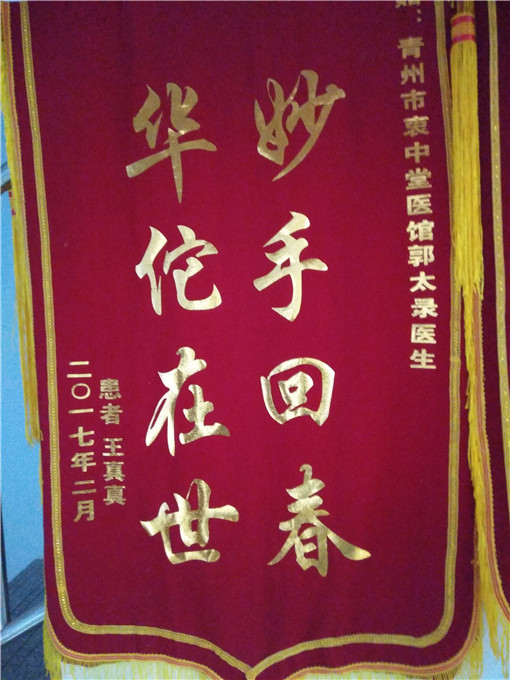 青州市衷中堂医馆郭太录医生
妙手回春
华佗在世
患者 王真真
二〇一七年二月